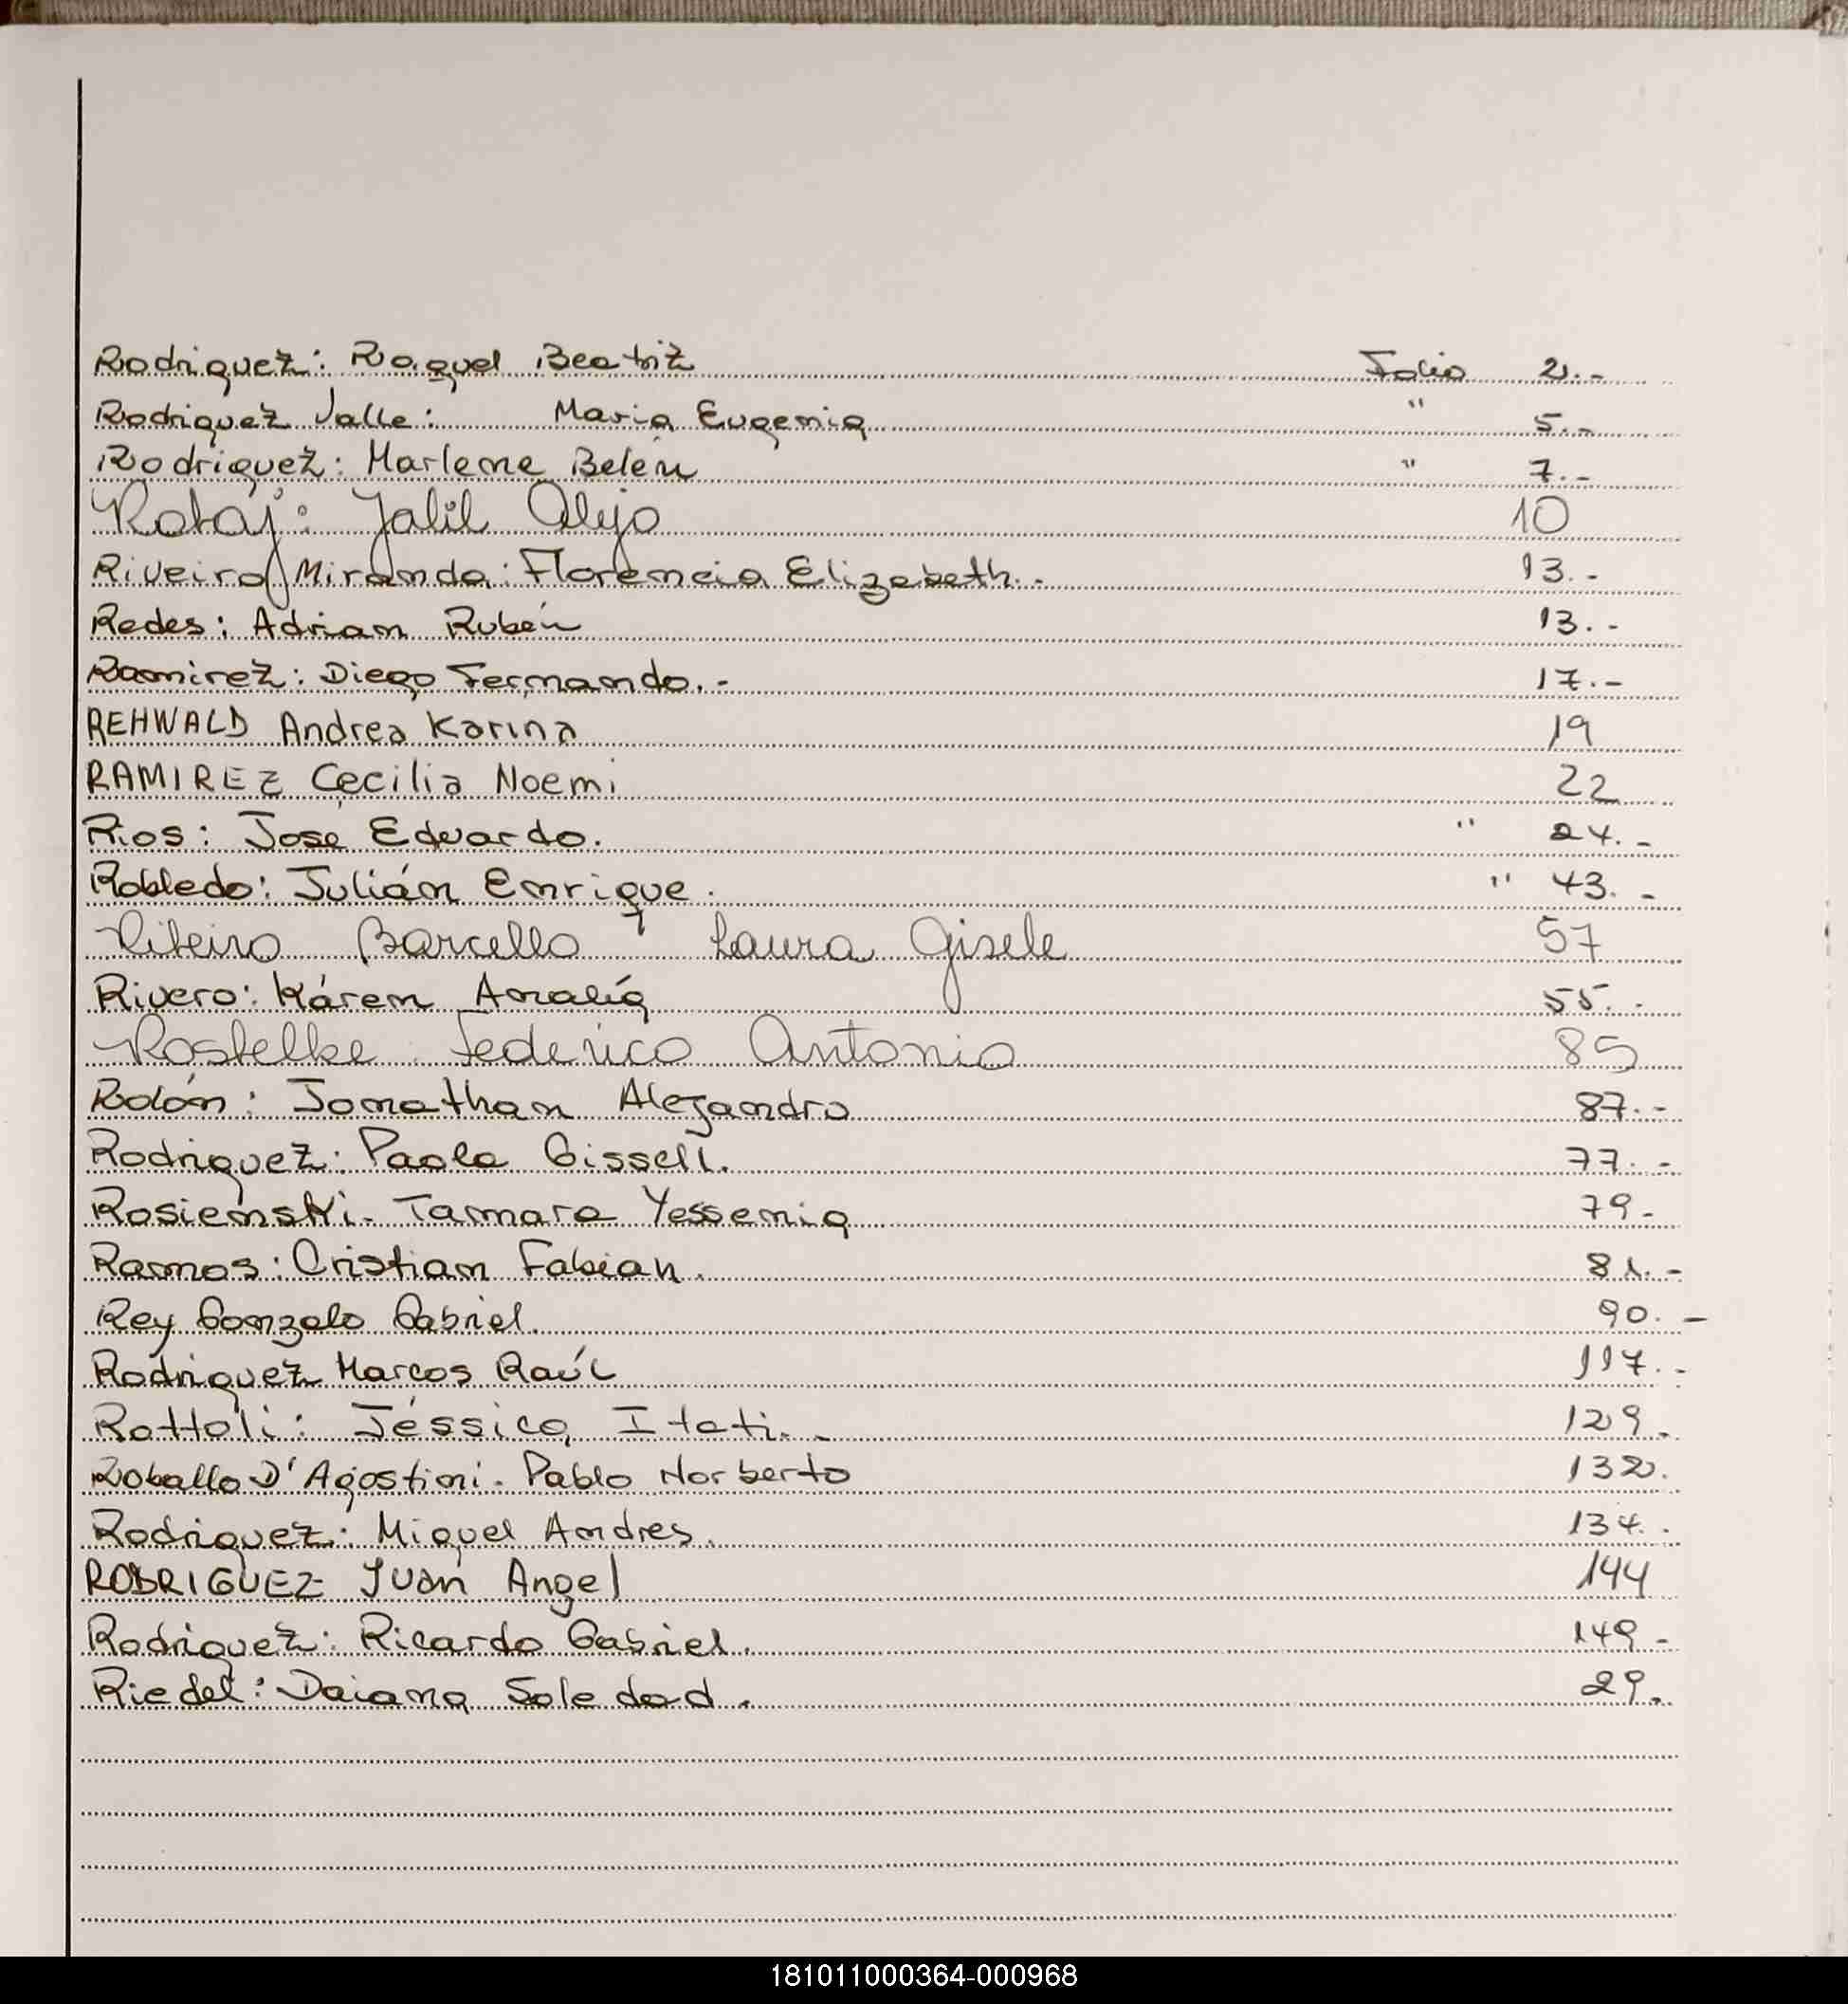 Rodriguez: Raquel Beatriz Folio 2.-
Rodriguez Valle: Maria Eugenia " 5.-
Rodriguez: Marlene Belén " 7.-
Rotaj: Jalil Alejo 10
Riveiro Miranda: Florencia Elizabeth.- 13.-
Redes: Adrian Rubén 13.-
Ramirez: Diego Fernando.- 17.-
REHWALD Andrea Karina 19
RAMIREZ Cecilia Noemi 22
Rios: José Eduardo. " 24.-
Robledo: Julián Enrique. " 43.-
Ribeiro Barcello Laura Gisele 57
Rivero: Káren Analía 55.-
Rostelke Federico Antonio 85
Rolón: Jonathan Alejandro 87.-
Rodriguez: Paola Gissell. 77.-
Rosienski. Tamara Yessenia 79-
Ramos: Cristian Fabian. 81.-
Rey Gonzalo Gabriel. 90.-
Rodriguez Marcos Raúl 117.-
Rottoli: Jéssica Itati.- 129.
Roballo D'Agostini. Pablo Norberto 132.
Rodriguez: Miguel Andres. 134.-
RODRIGUEZ Juan Angel 144
Rodriguez: Ricardo Gabriel. 149-
Riedel: Daiana Soledad. 29.
181011000364-000968